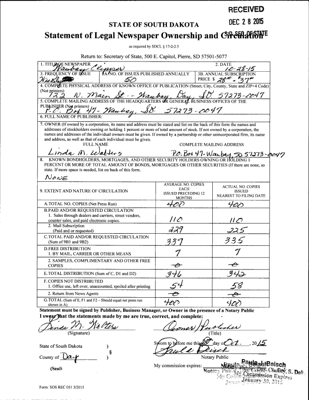 RECEIVED
DEC 28 2015
STATE OF SOUTH DAKOTA
Statement of Legal Newspaper Ownership and Circulation
as required by SDCL § 17-2-2.5
Return to: Secretary of State, 500 E. Capitol, Pierre, SD 57501-5077
1. TITLE OF NEWSPAPER
Waubay Clipper
2. DATE
10-28-15
3. FREQUENCY OF ISSUE
3A. NO. OF ISSUES PUBLISHED ANNUALLY
50
3B. ANNUAL SUBSCRIPTION
PRICE $
4. COMPLETE PHYSICAL ADDRESS OF KNOWN OFFICE OF PUBLICATION (Street, City, County, State and ZIP+4 Code)
(Not printers)
122 N. Main St. - Waubay, Day, SD 57273-0047
5. COMPLETE MAILING ADDRESS OF THE HEADQUARTERS OR GENERAL BUSINESS OFFICES OF THE
PUBLISHER (Not printer)
P.O. Box 47 - Waubay, SD 57273-0047
6. FULL NAME OF PUBLISHER:
7. OWNER (If owned by a corporation, its name and address must be stated and also
FULL NAME
COMPLETE MAILING ADDRESS
Linda M. Walters
PO Box 47-Waubay SD 57273-0047
8. KNOWN BONDHOLDERS, MORTGAGES, AND OTHER SECURITY HOLDERS OWNING OR HOLDING 1
PERCENT OR MORE OF TOTAL AMOUNT OF BONDS, MORTGAGES OR OTHER SECURITIES (If there are none, so
state. If more space is needed, list on back of this form.
NONE
9. EXTENT AND NATURE OF CIRCULATION
AVERAGE NO. COPIES
EACH
ISSUED PRECEDING 12
MONTHS
ACTUAL NO. COPIES
ISSUED
NEAREST TO FILING DATE
A. TOTAL NO. COPIES (Net Press Run)
400
400
B. PAID AND/OR REQUESTED CIRCULATION
1. Sales through dealers and carriers, street vendors,
counter sales, and paid electronic copies.
110
110
2. Mail Subscription
(Paid and or requested)
229
225
C. TOTAL PAID AND/OR REQUESTED CIRCULATION
(Sum of 9B1 and 9B2)
335
D. FREE DISTRIBUTION
1. BY MAIL, CARRIER OR OTHER MEANS
7
7
2. SAMPLES, COMPLIMENTARY AND OTHER FREE
COPIES
E. TOTAL DISTRIBUTION (Sum of C, D1 and D2)
346
342
F. COPIES NOT DISTRIBUTED
1. Office use, left over, unaccounted, spoiled after printing
54
58
2. Return from News Agents
G. TOTAL (Sum of E, F1 and F2 - Should equal net press run
shown in A)
400
400
Statement must be signed by Publisher, Business Manager, or Owner in the presence of a Notary Public
I swear that the statements made by me are true, correct, and complete:
Linda M. Walters
Owner/Publisher
(Signature)
(Title)
State of South Dakota )
County of Day )
Sworn to before me this
Notary Public
(Seal)
My commission expires:
My Commission Expires
Form: SOS REC 051 3/2015